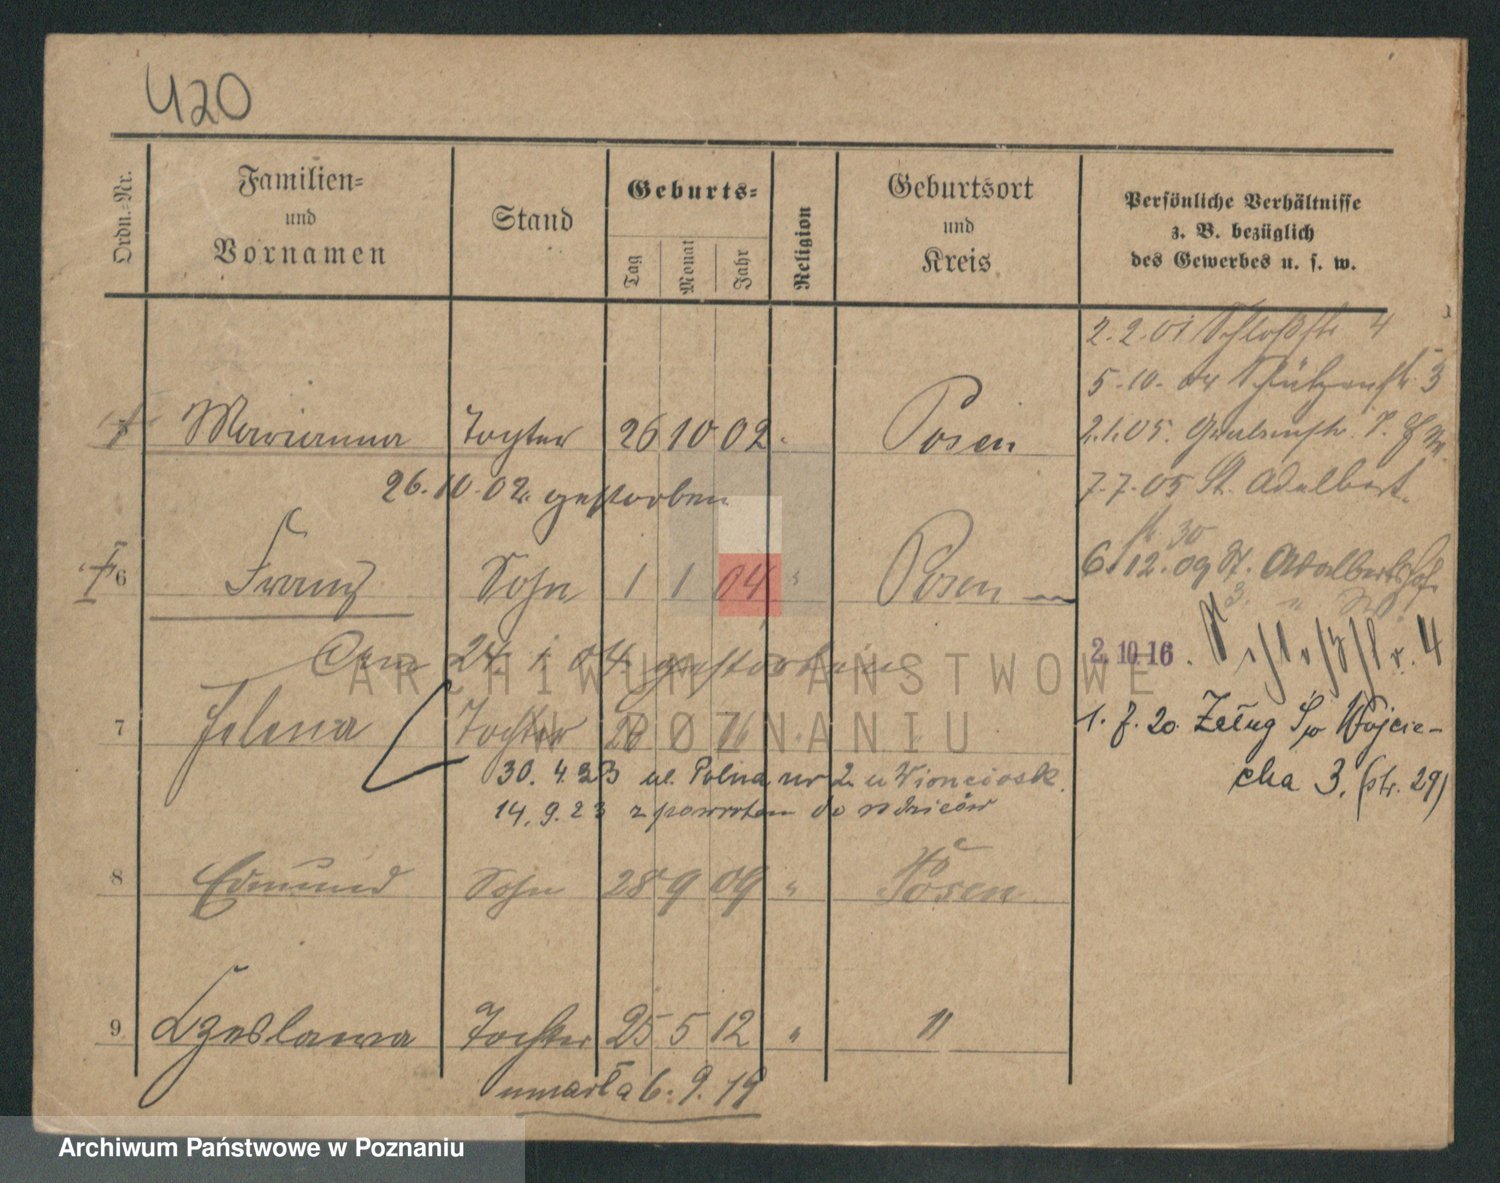 420
Ordn.-Nr.
Familien-
und
Vornamen
Stand
Geburts-
Tag
Monat
Jahr
Religion
Geburtsort
und
Kreis
Persönliche Verhältnisse
z. B. bezüglich
des Gewerbes u. s. w.
2.2.01 Schloßstr 4
5.10.04 Schützenstr. 3
Marianna Tochter 26 10 02 Posen
2.1.05.
26.10.02. gestorben
7.7.05 St. Adalbert
str 30
6 Franz Sohn 1 1 04 " Posen
6.12.09 St. Adalbertstr
3.
Am 24.1.04 gestorben
2.10.16. Schloßstr. 4
7 Helena Tochter
1.7.20 Św Wojcie-
cha 3. (str. 29)
30.4.23 ul. Polna nr 2 u
14.9.23 z powrotem do rodziców
8 Edmund Sohn 28 9 09 " Posen
9 Czeslawa Tochter 25 5 12 " "
umarła 6.9.19
ARCHIWUM PAŃSTWOWE
W POZNANIU
Archiwum Państwowe w Poznaniu